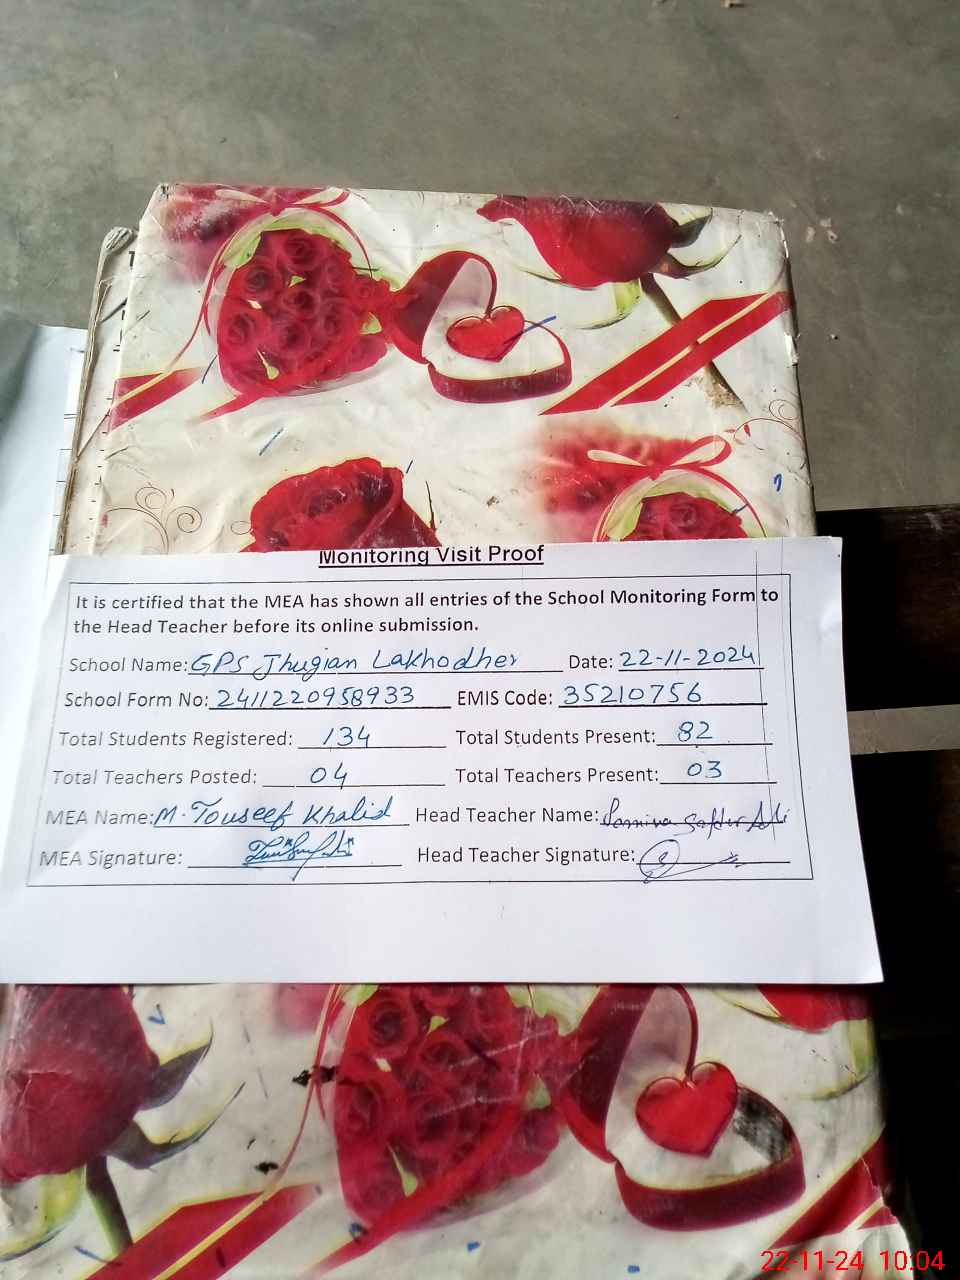 Monitoring Visit Proof
It is certified that the MEA has shown all entries of the School Monitoring Form to
the Head Teacher before its online submission.
School Name: GPS Jhugian Lakhodher Date: 22-11-2024
School Form No: 2411220958933 EMIS Code: 35210756
Total Students Registered: 134 Total Students Present: 82
Total Teachers Posted: 04 Total Teachers Present: 03
MEA Name: M. Touseef Khalid Head Teacher Name:
MEA Signature: Head Teacher Signature:
22-11-24 10:04